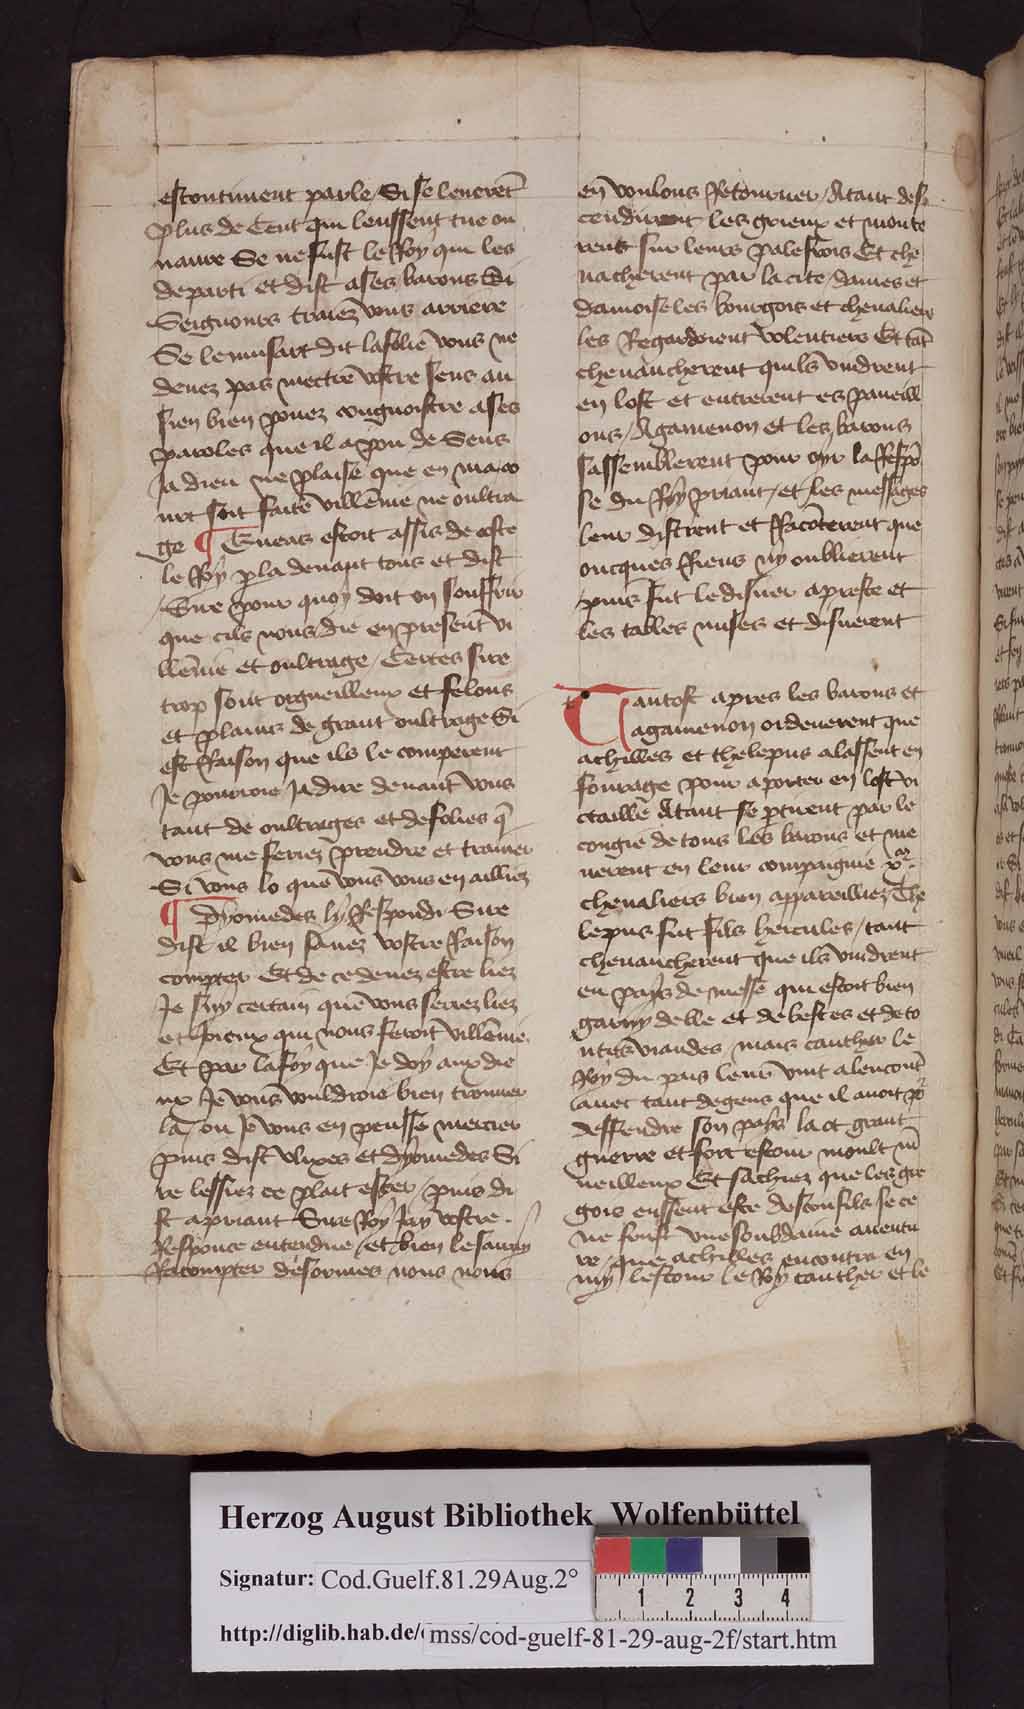 estoutment parle / Si se leueret
plus de Cent qui leussent tue ou
naure Se ne fust le Roy qui les
departi et dist ases barons Di
Seigneurs traiez vous arriere
Se le musart dit la folie vous ne
deuez pas mectre vostre sens au
sien bien pouez congnoistre ases
paroles que il a pou de Sens
Ja dieu ne plaise que en ma co
urt soit faite villenie ne oultra
ge ¶ Eneas estoit assis de coste
le Roy pla deuant tous et dist
Sire pour quoy doit on souffrir
que cils nous die en present vi
llenie et oultrage / Certes sire
trop sont orgueilleux et felons
et plains de grant oultrage Si
est Raison que ils le comperent
Je pourroie Ja dire deuant vous
tant de oultrages et de folies q
vous me feriez prendre et trainer
Si vous lo que vous vous en ailliez
¶ Dyomedes ly Respondi Sire
dist il bien sauez vostre Raison
compter Et de ce deuez estre liez
Je suy certain que vous seriez liez
et joieux qui nous feroit villenie
Et par la foy que Je doy aux die
ux Je vous vouldroie bien trouuer
la / ou Je vous en peusse mercier
puis dist vlixes et dyomedes Si
re lessiez ce plait ester / puis di
st a priant Sire Roy Jay vostre
Responce entendue / et bien le sauray
Racompter desormes nous nous
en voulons Retourner / Atant des
cendirent les grieux et monte
rent sur leurs palefrois Et che
uacherent par la cite / dames et
damoiseles bourgois et cheualiers
les Regardoient volentiers Et tant
cheuaucherent quils vindrent
en lost et entrerent es paueill
ons / Agamenon et les barons
sassemblerent pour oyr la Respo
se du Roy priant / et les messages
leur distrent et Raconterent que
oncques Riens ny oublierent
puis fut le disner apreste et
les tables mises et disnerent
Tantost apres les barons et
agamenon ordenerent que
achilles et thelepus alassent en
fourage pour aporter en lost vi
ctaille Atant se ptirent par le
congie de tous les barons et me
nerent en leur compaignie xm
cheualiers bien appareilliez The
lepus fut fils hercules / tant
cheuaucherent que ils vindrent
en pays de messe qui estoit bien
garny de ble et de bestes et de to
utes viandes / mais cauther le
Roy du pais leur vint alencont
auec tant de gens que il auoit po
deffendre son pays la ot grant
guerre et fort estour moult m
ueilleux Et sachiez que les gre
gois eussent este desconfils se ce
ne feust vne soubdaine auentu
re / que achilles encontra en
my lestour le Roy cauther et le
Herzog August Bibliothek Wolfenbüttel
Signatur: Cod.Guelf.81.29Aug.2°
1 2 3 4
http://diglib.hab.de/ mss/cod-guelf-81-29-aug-2f/start.htm